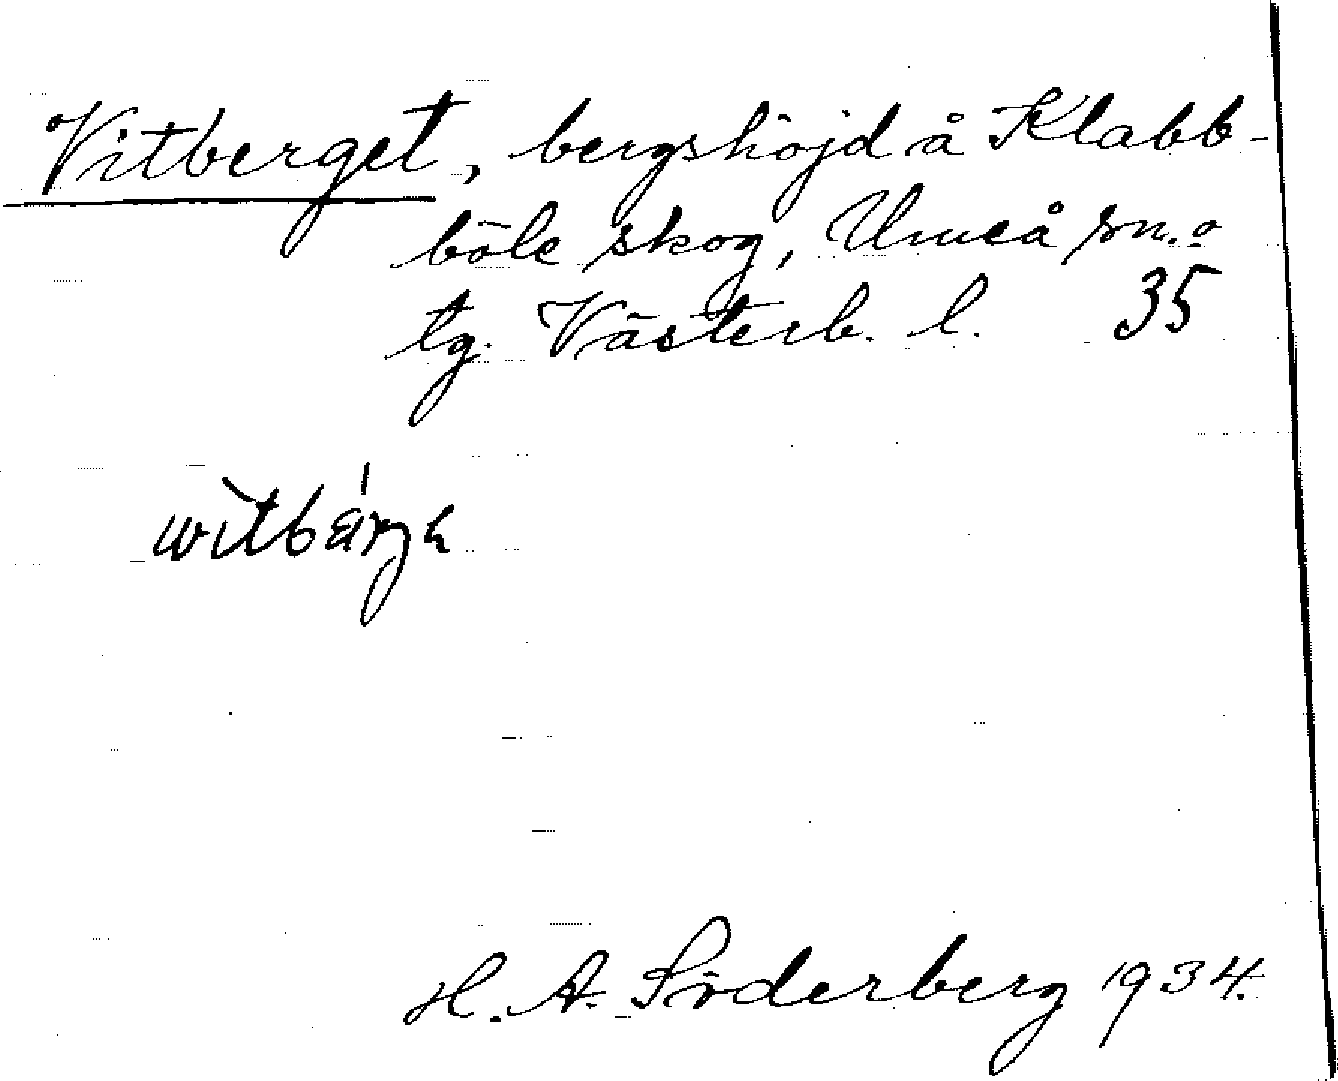 Vitberget, bergshöjd å Klabb-
böle skog, Umeå sn. o
tg. Västerb. l. 35
H. A. Söderberg 1934.